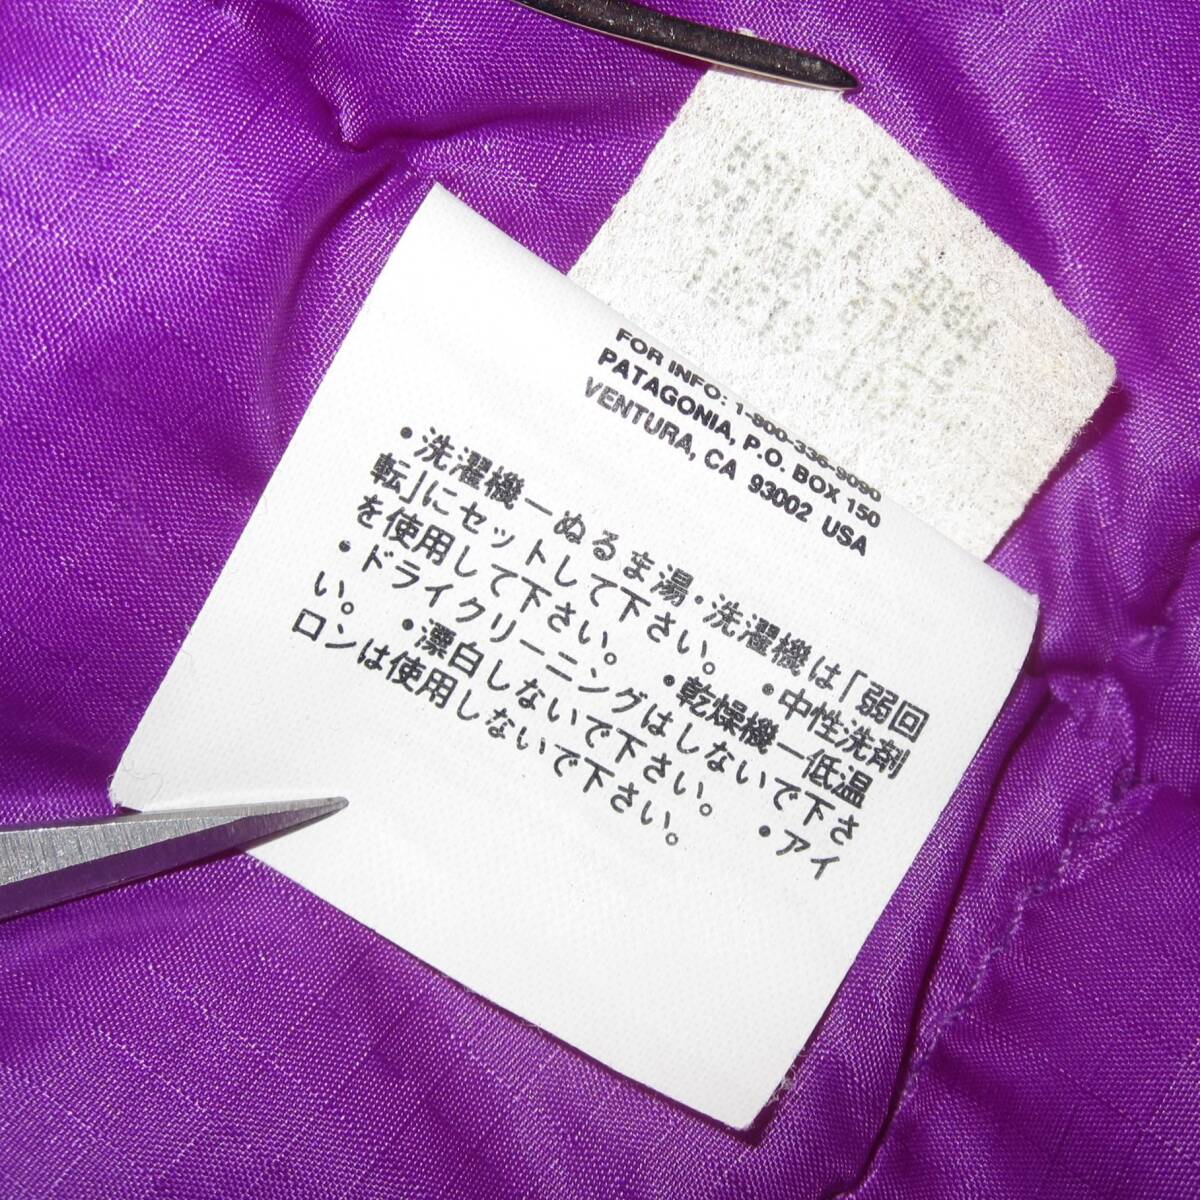 FOR INFO: 1-800-336-9090
PATAGONIA, P.O. BOX 150
VENTURA, CA 93002 USA
•洗濯機ーぬるま湯・洗濯機は「弱回
転」にセットして下さい。 •中性洗剤
を使用して下さい。 •乾燥機ー低温
•ドライクリーニングはしないで下さ
い。 •漂白しないで下さい。 •アイ
ロンは使用しないで下さい。